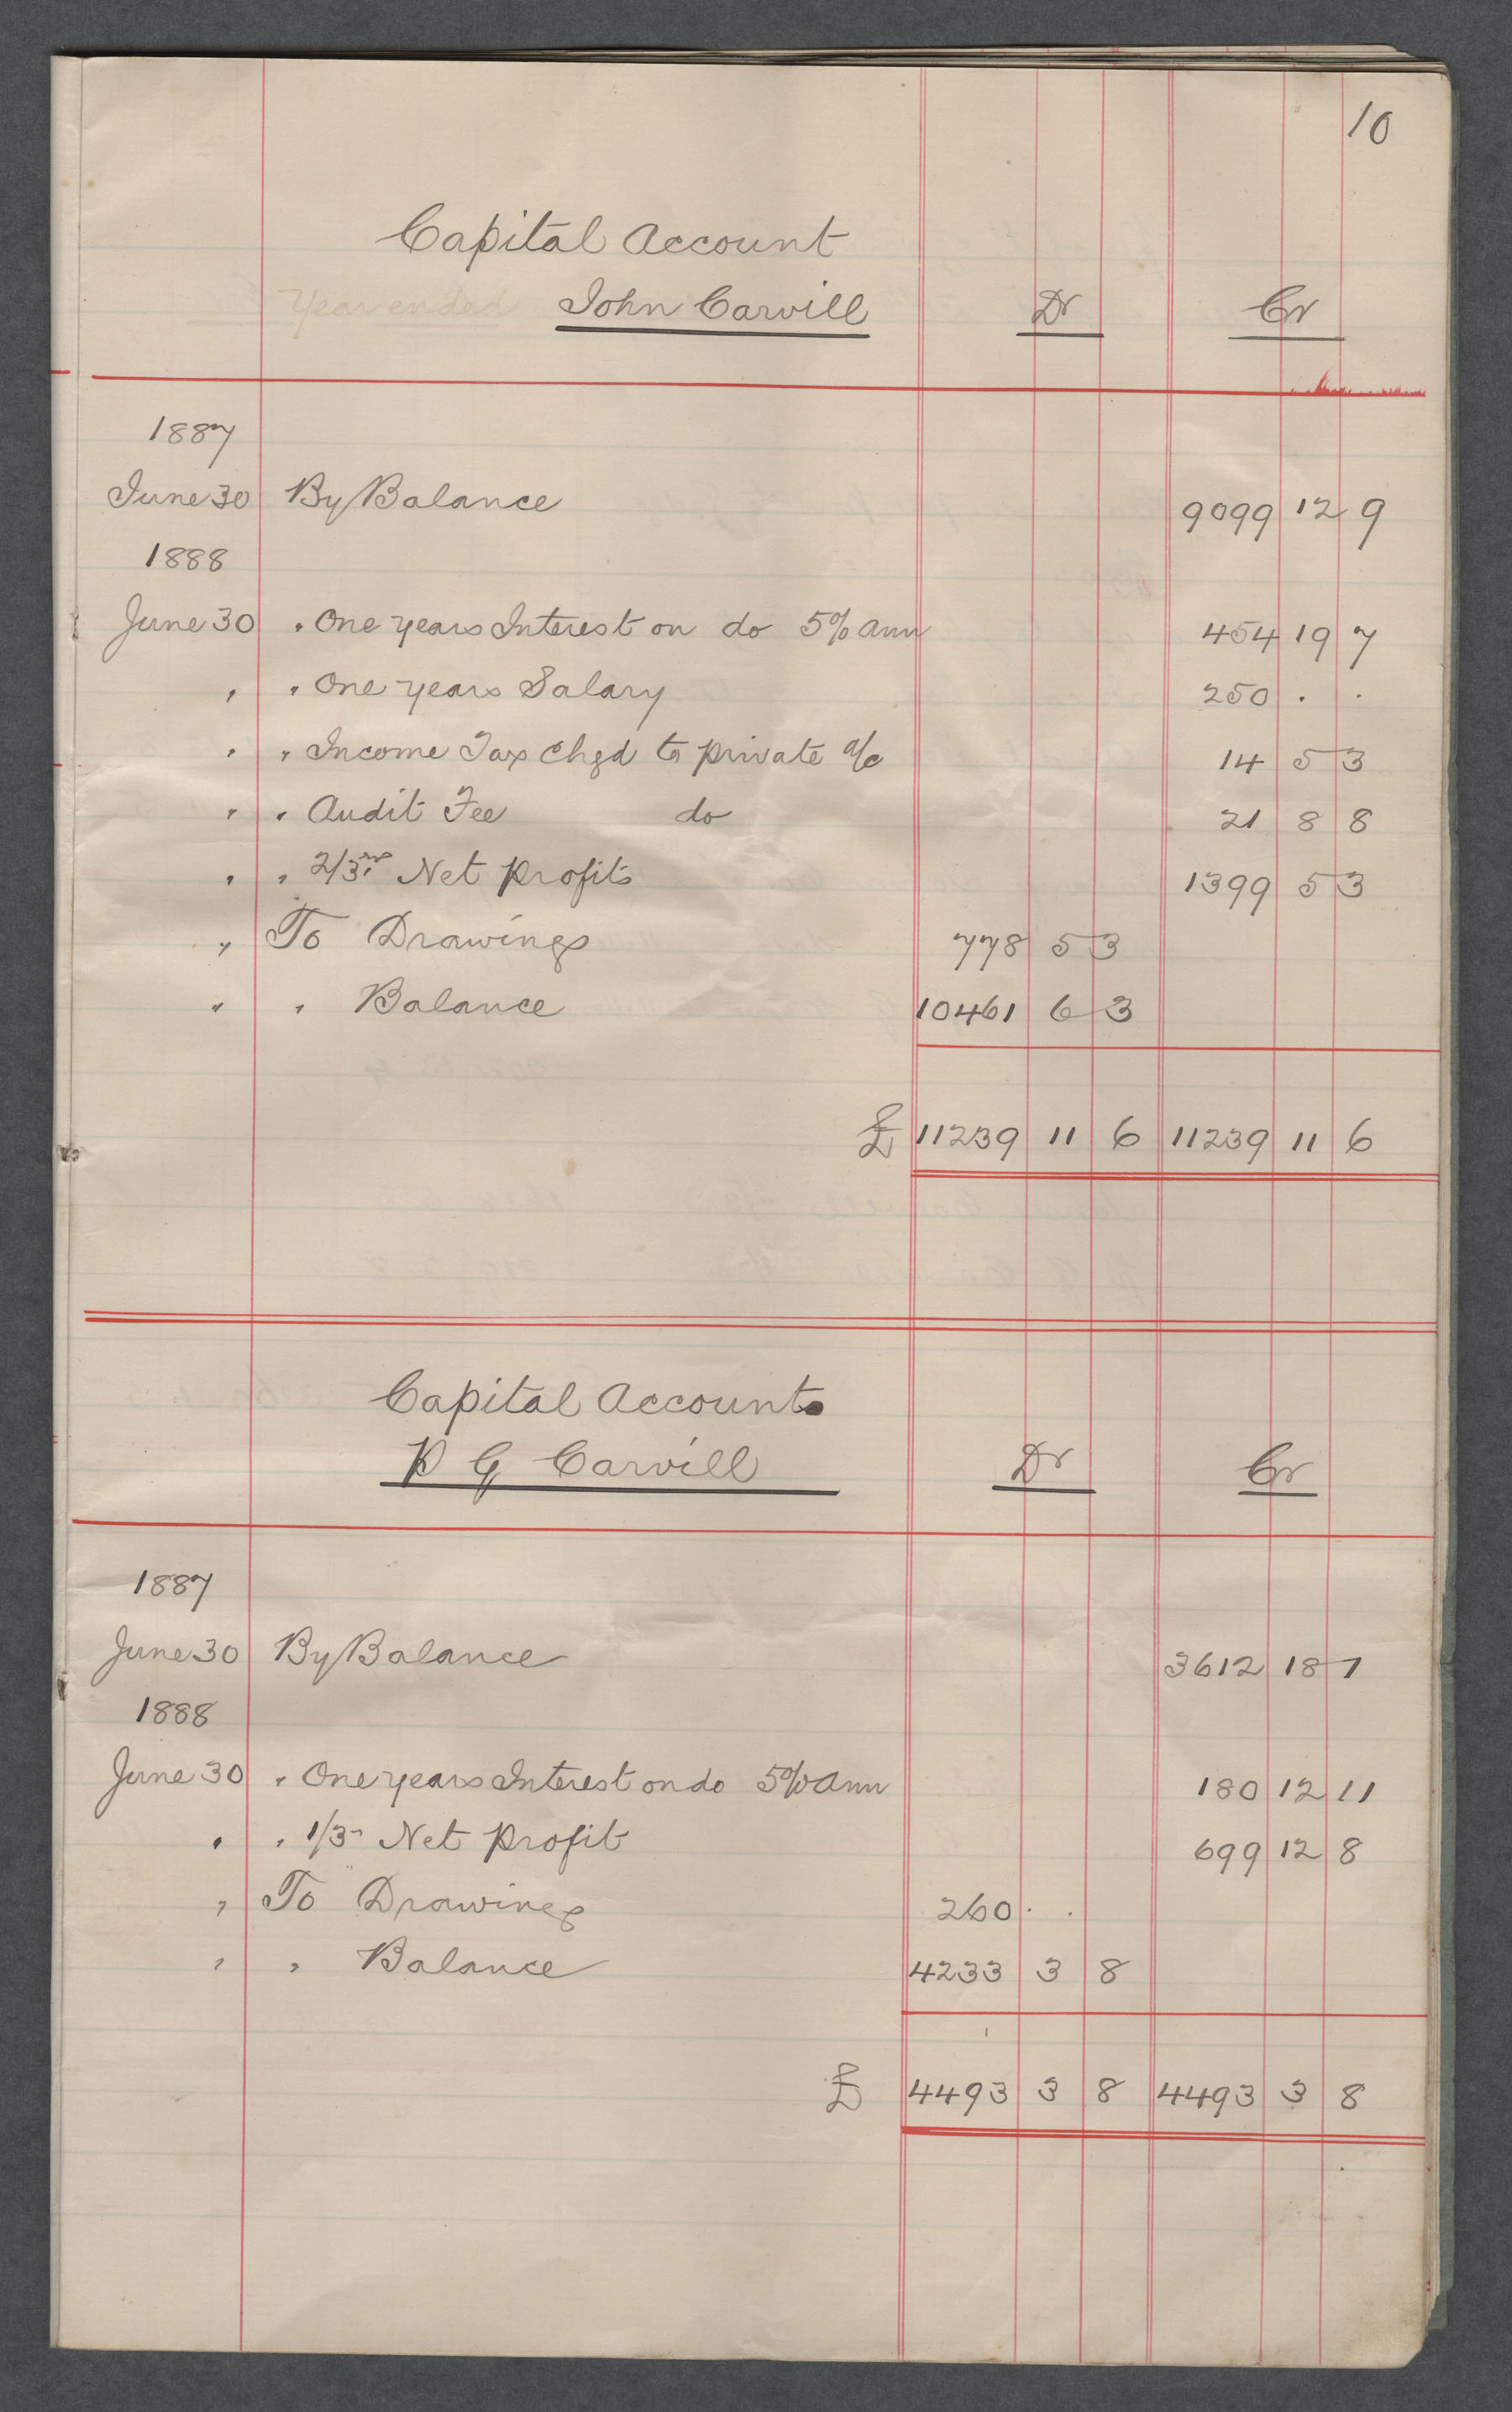 10
Capital Account
Year ended John Carvill Dr Cr
1887
June 30 By Balance 9099 12 9
1888
June 30 " One years Interest on do 5% ann 454 19 7
" " One years Salary 250 . .
" " Income Tax Chgd to private a/c 14 5 3
" " Audit Fee do 21 8 8
" " 2/3rds Net Profits 1399 5 3
" To Drawings 778 5 3
" " Balance 10461 6 3
£ 11239 11 6 11239 11 6
Capital Account
P G Carvill Dr Cr
1887
June 30 By Balance 3612 18 1
1888
June 30 " One years Interest on do 5% ann 180 12 11
" " 1/3 Net Profit 699 12 8
" To Drawings 260 . .
" " Balance 4233 3 8
£ 4493 3 8 4493 3 8